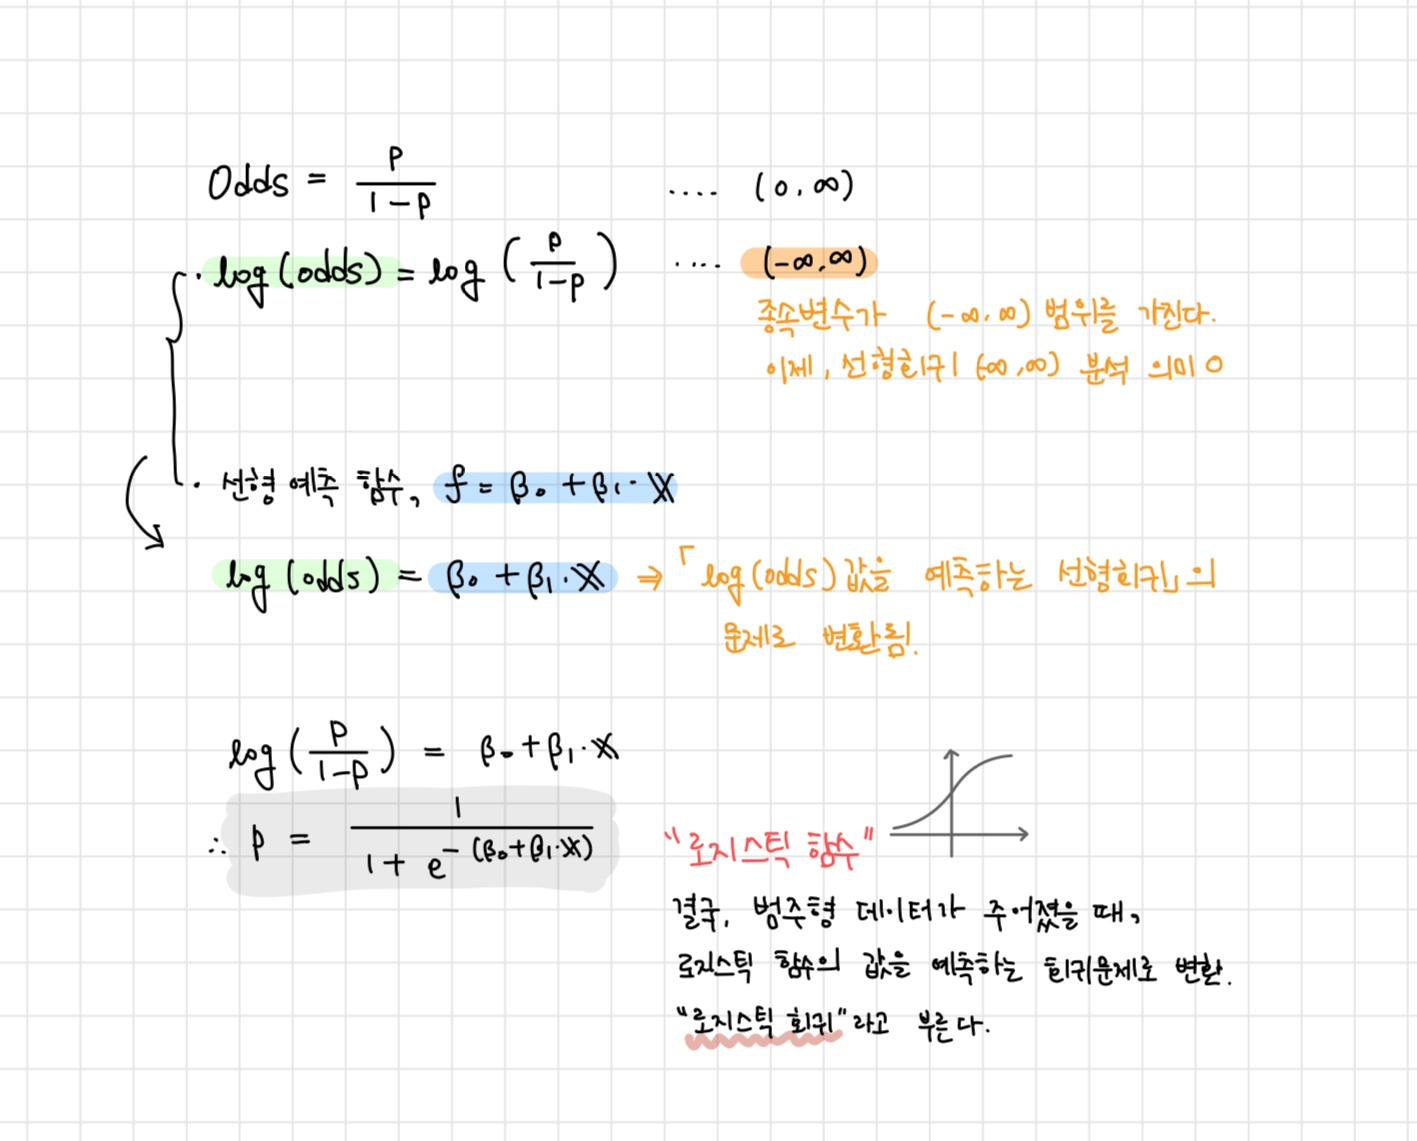 Odds = p / 1-p .... (0, ∞)
· log(odds) = log(p / 1-p) .... (-∞, ∞)
종속변수가 (-∞, ∞) 범위를 가진다.
이제, 선형회귀 (-∞, ∞) 분석 의미 O
· 선형 예측 함수, f = β₀ + β₁·X
log(odds) = β₀ + β₁·X ⇒ 「log(odds) 값을 예측하는 선형회귀」의
문제로 변환됨!
log(p / 1-p) = β₀ + β₁·X
∴ p = 1 / 1 + e^-(β₀+β₁·X)
"로지스틱 함수"
결국, 범주형 데이터가 주어졌을 때,
로지스틱 함수의 값을 예측하는 회귀문제로 변환.
"로지스틱 회귀"라고 부른다.